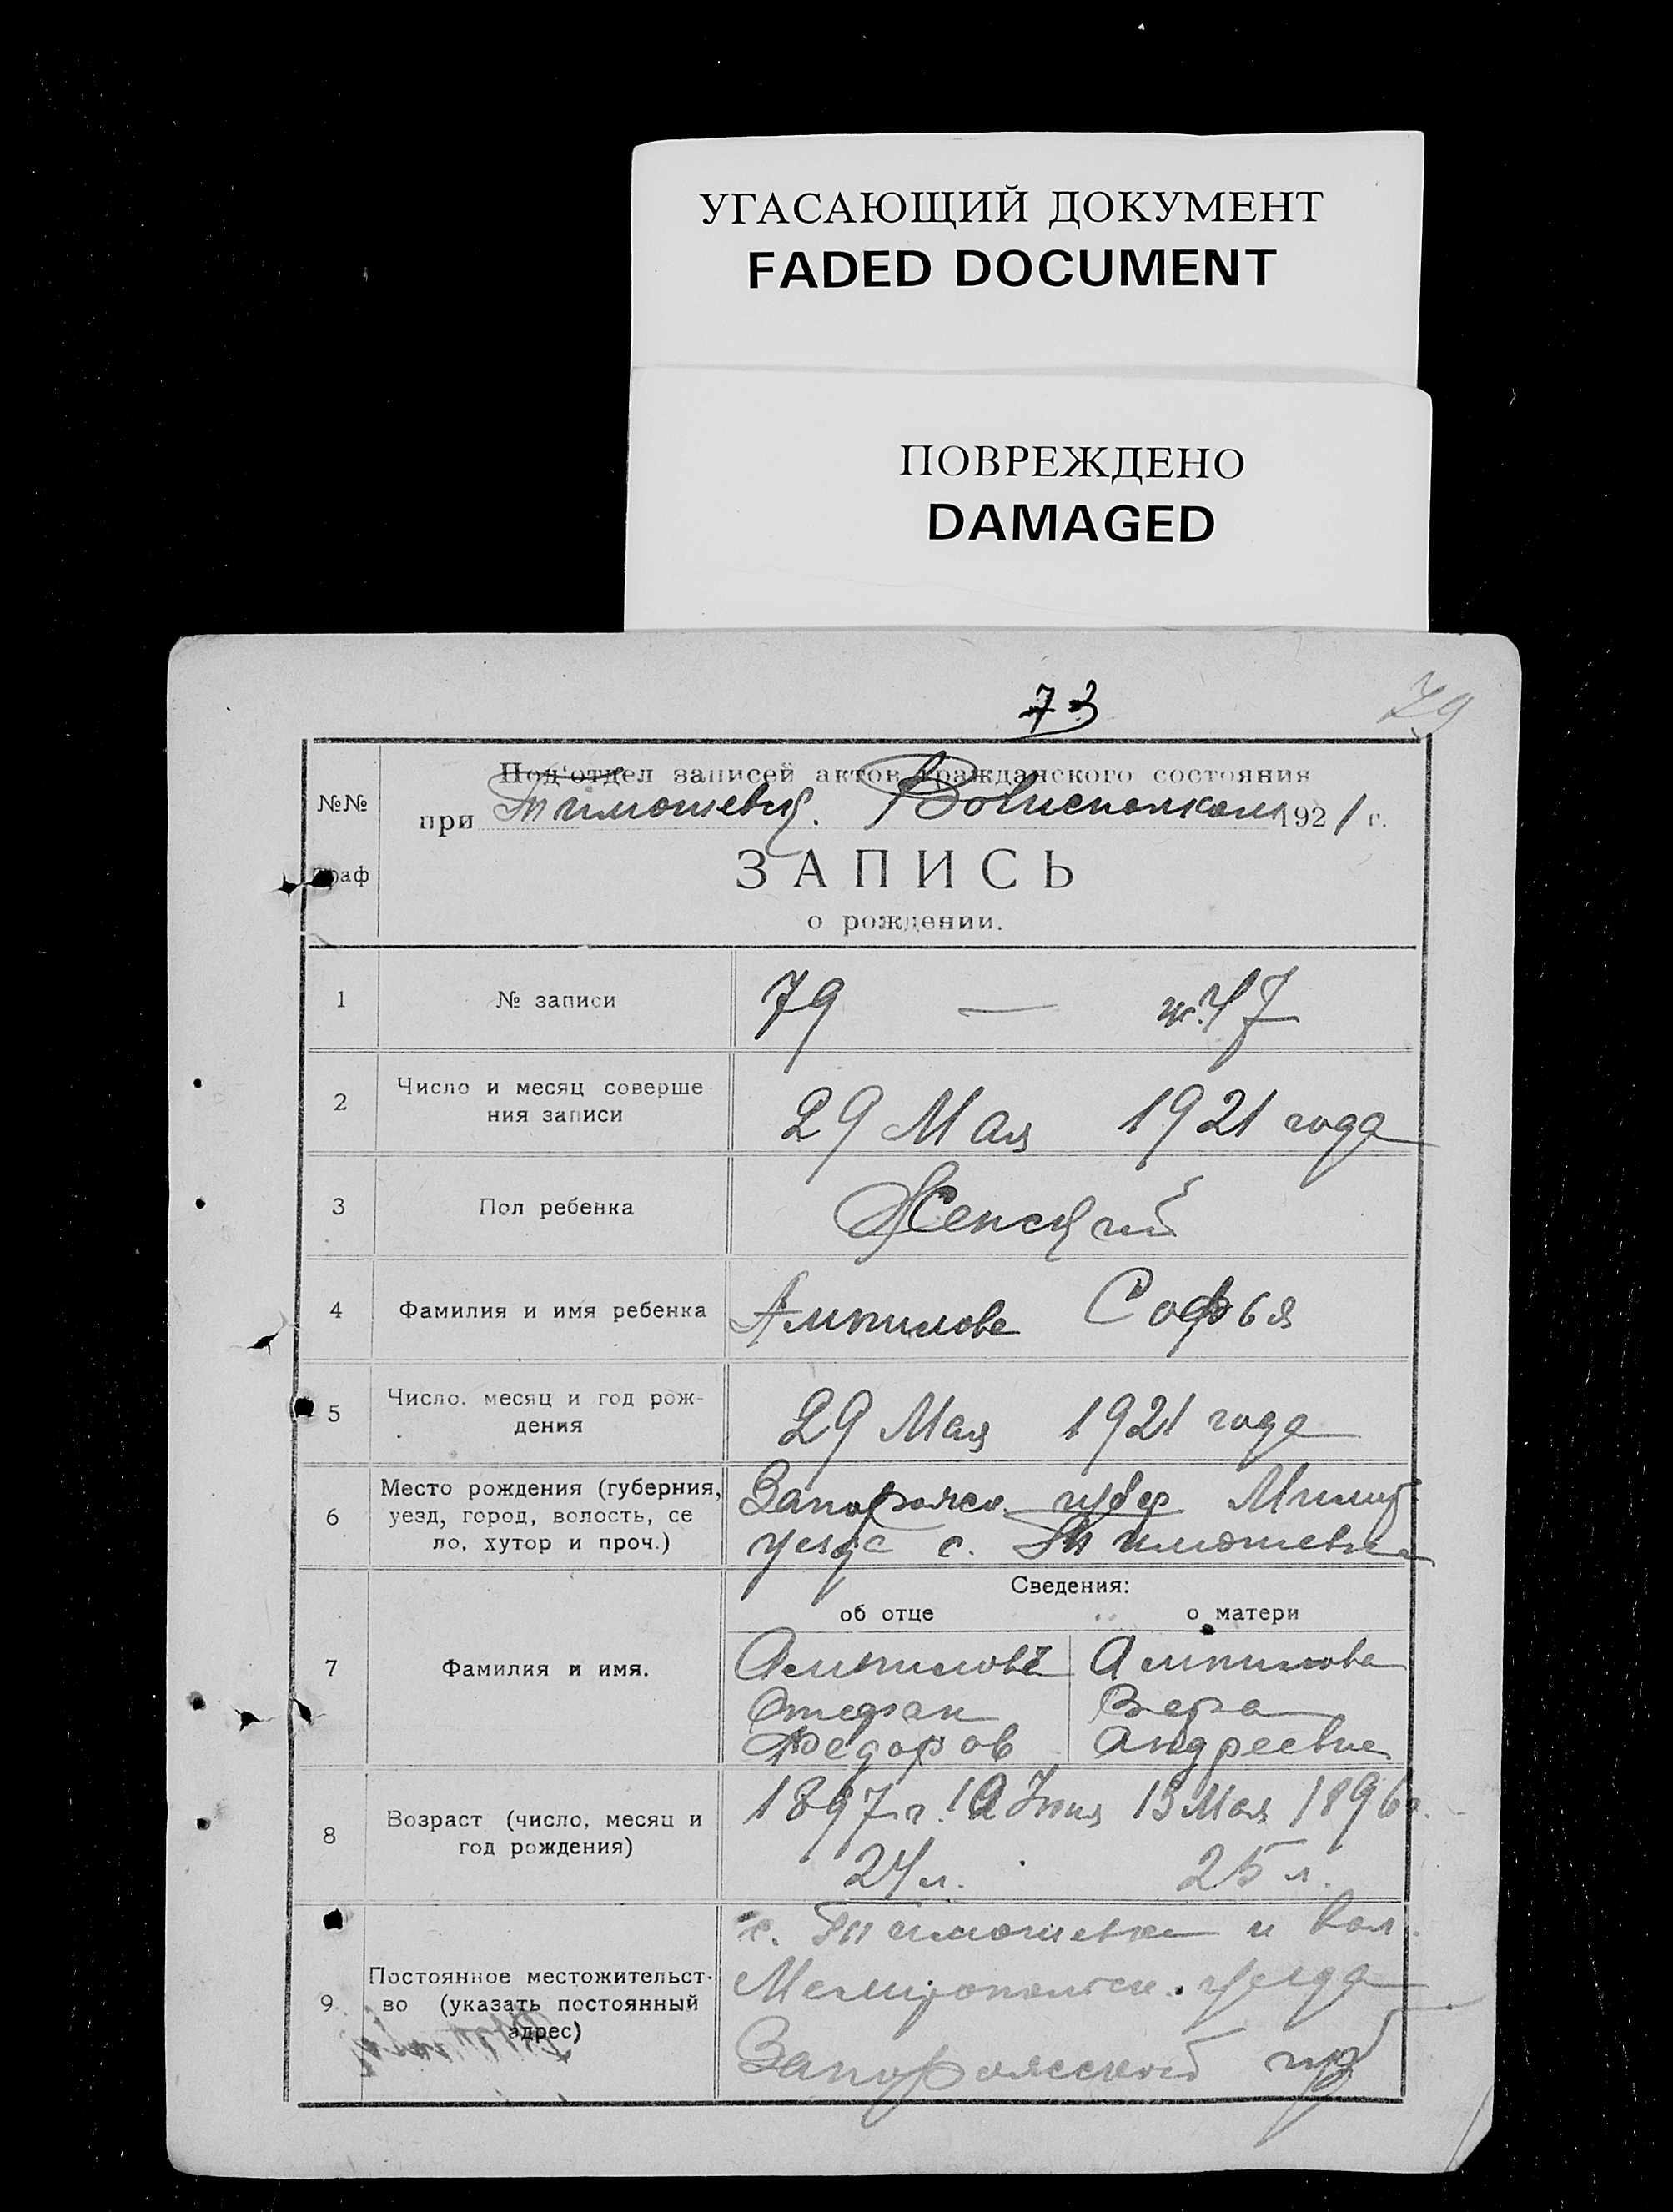 УГАСАЮЩИЙ ДОКУМЕНТ
FADED DOCUMENT
ПОВРЕЖДЕНО
DAMAGED
73
79
№№
граф
Под'отдел записей актов гражданского состояния
при Тимошевск. Волисполком 1921 г.
ЗАПИСЬ
о рождении.
1 № записи 79 — ж. 47
2 Число и месяц соверше
ния записи 29 Мая 1921 года
3 Пол ребенка Женский
4 Фамилия и имя ребенка Ампилова Софья
5 Число. месяц и год рож-
дения 29 Мая 1921 года
6 Место рождения (губерния,
уезд, город, волость, се
ло, хутор и проч.)
Запорожск. губер
уезда с. Тимошевка
Сведения:
об отце о матери
7 Фамилия и имя.
Ампилова Ампилова
Стефан Вера
Федоров Андреевна
8 Возраст (число, месяц и
год рождения)
1897 г. 13 Мая 1896 г.
24 л. 25 л.
9 Постоянное местожительст-
во (указать постоянный
адрес)
с. Тимошевка и вол.
Мелитопольск. уезда
Запорожской губ